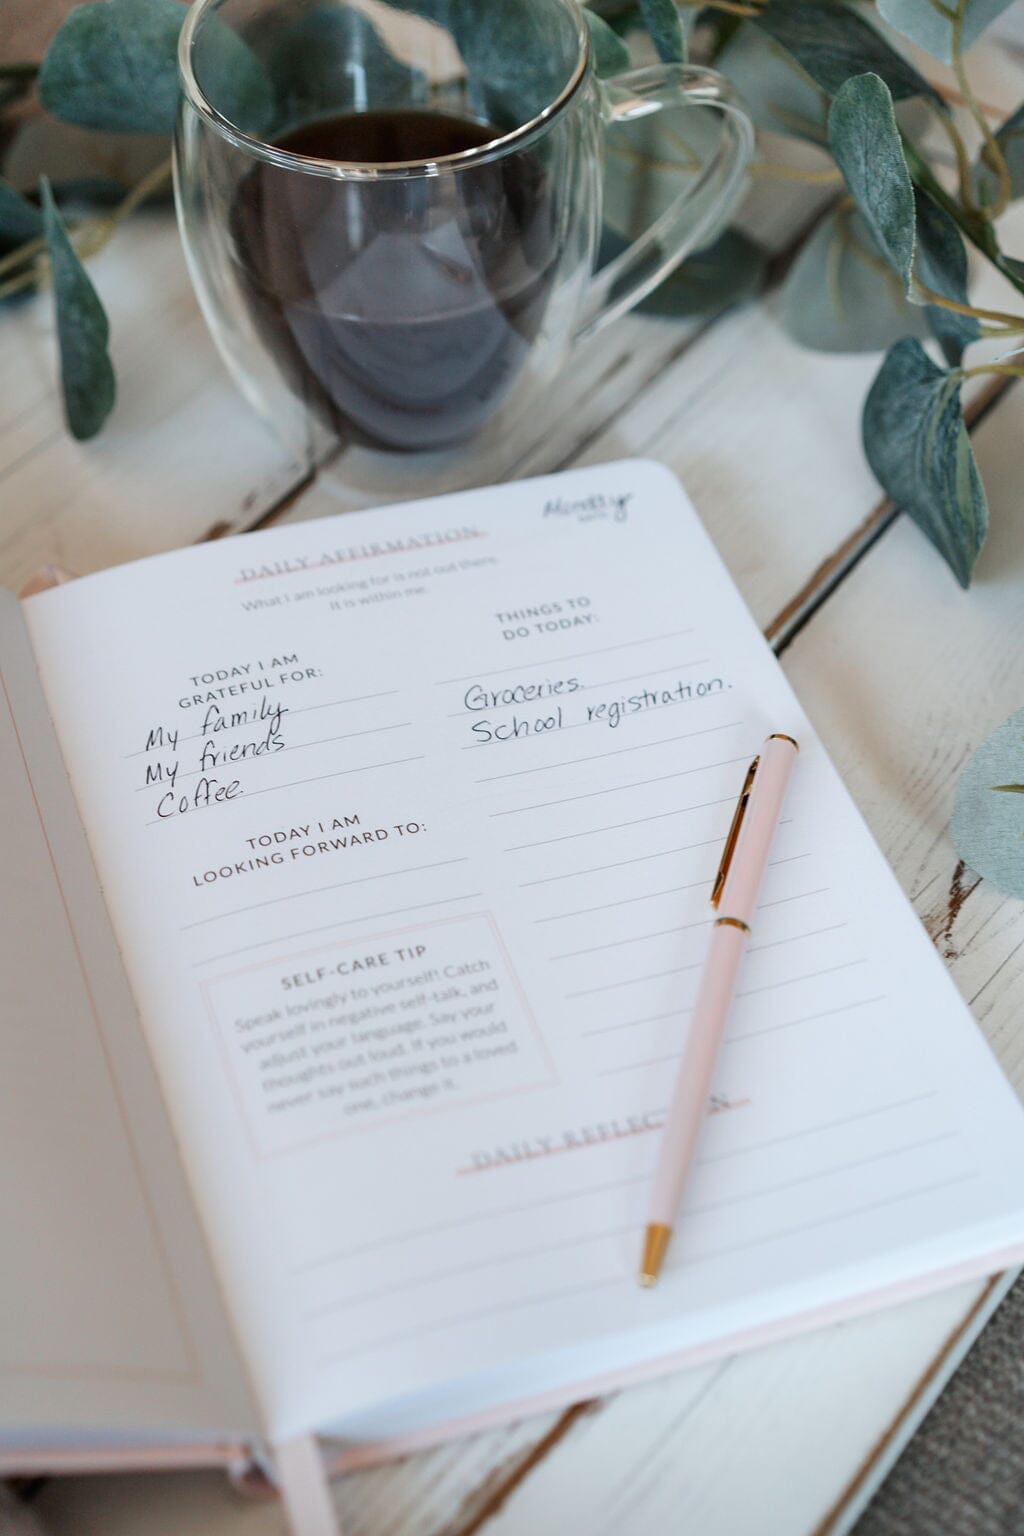 Monday
DATE
DAILY AFFIRMATION
What I am looking for is not out there.
It is within me.
TODAY I AM
GRATEFUL FOR:
My family
My friends
Coffee.
TODAY I AM
LOOKING FORWARD TO:
SELF-CARE TIP
Speak lovingly to yourself! Catch
yourself in negative self-talk, and
adjust your language. Say your
thoughts out loud. If you would
never say such things to a loved
one, change it.
THINGS TO
DO TODAY:
Groceries.
School registration.
DAILY REFLECTION